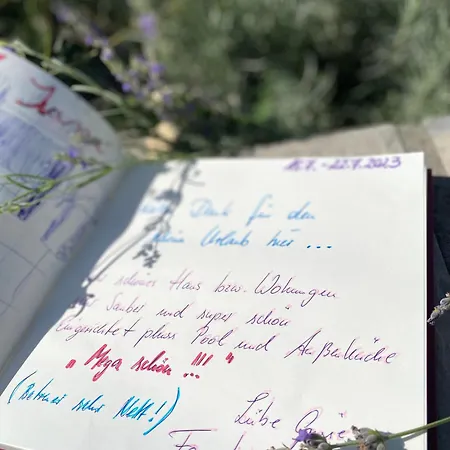 Ivana
16.7. - 22.7.2023
Dank für den
Urlaub hier ...
schönes Haus bzw. Wohnungen
Sauber und super schön
Eingerichtet pluss Pool und Außenküche
„Mega schön !!! "
(Betreuer sehr Nett!)
Liebe Grüße